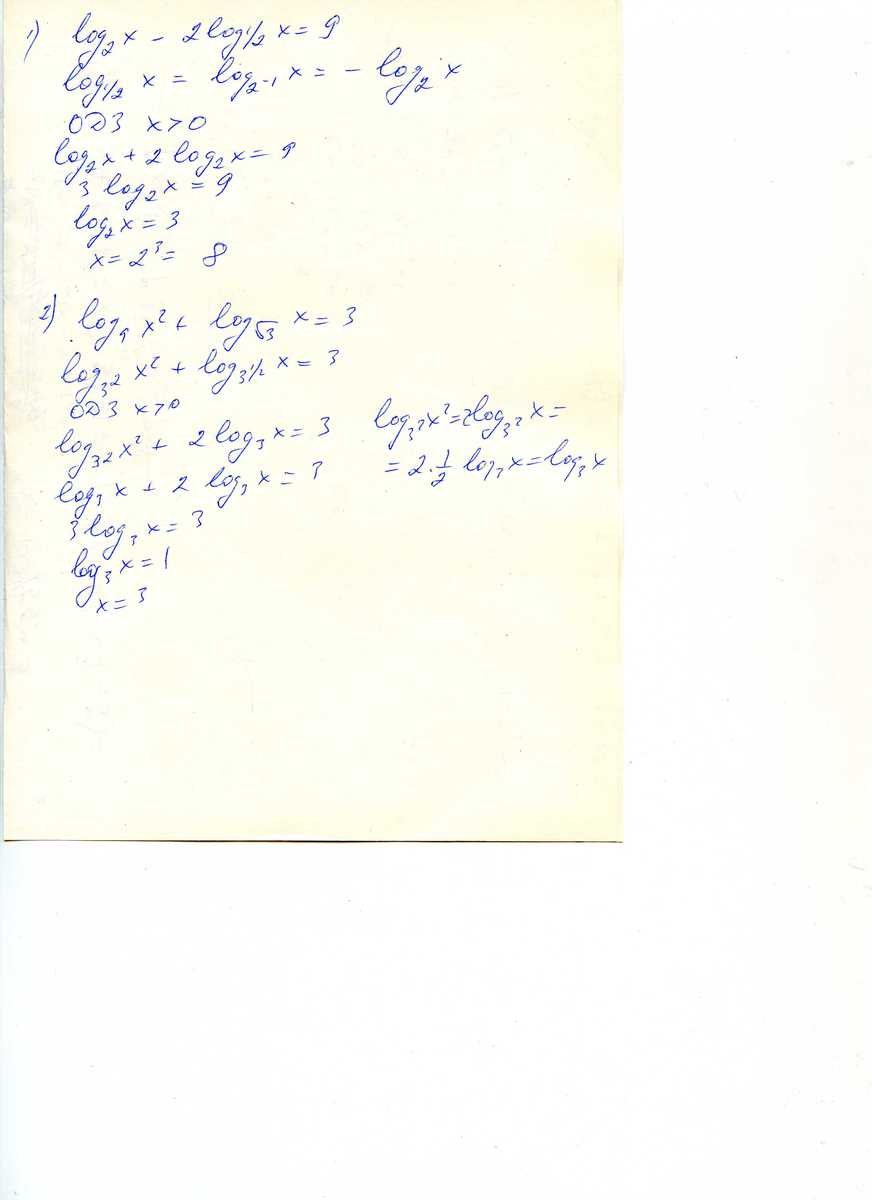 1) log₂ x − 2 log₁/₂ x = 9
log₁/₂ x = log₂₋₁ x = − log₂ x
ОДЗ x > 0
log₂ x + 2 log₂ x = 9
3 log₂ x = 9
log₂ x = 3
x = 2³ = 8
2) log₉ x² + log_√3 x = 3
log_3² x² + log_3^1/2 x = 3
ОДЗ x > 0
log_3² x² + 2 log₃ x = 3 log_3² x² = 2 log_3² x =
log₃ x + 2 log₃ x = 3 = 2 · 1/2 log₃ x = log₃ x
3 log₃ x = 3
log₃ x = 1
x = 3